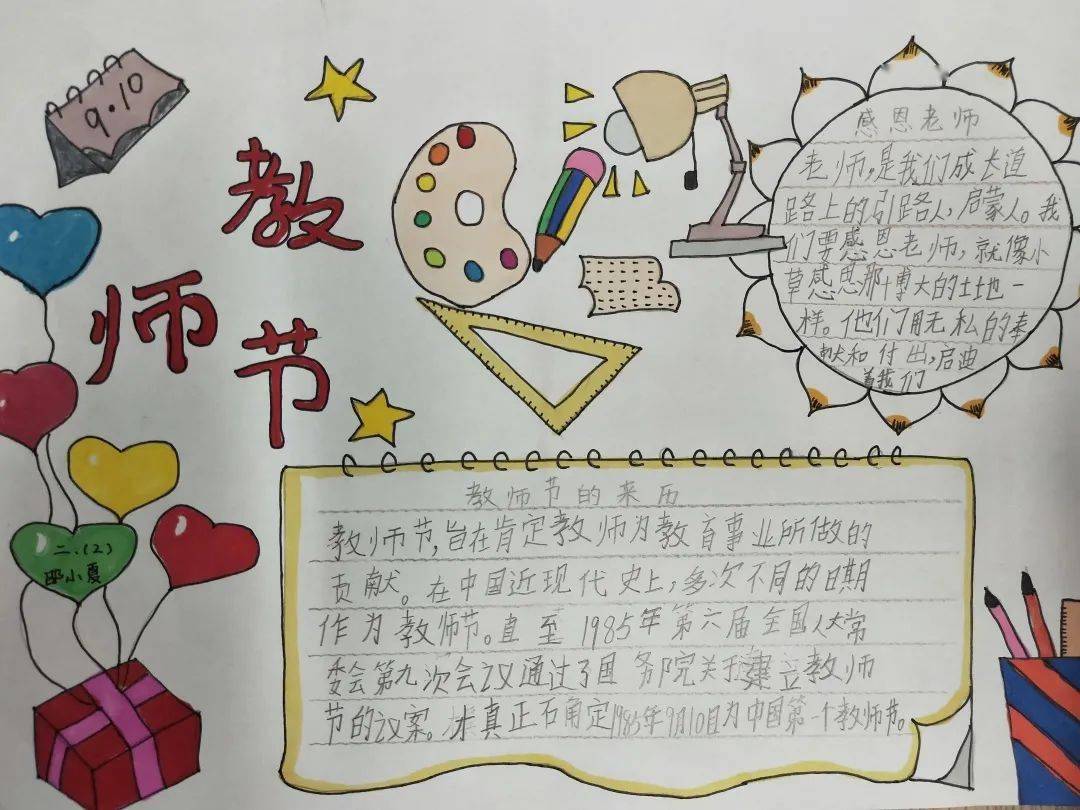 9·10
教
师
节
感恩老师
老师,是我们成长道
路上的引路人,启蒙人。我
们要感恩老师,就像小
草感恩那博大的土地一
样。他们用无私的奉
献和付出,启迪
着我们
二.(2)
邵小夏
教师节的来历
教师节,旨在肯定教师为教育事业所做的
贡献。在中国近现代史上,多次不同的日期
作为教师节。直至1985年第六届全国人大常
委会第九次会议通过了国务院关于建立教师
节的议案。才真正确定1985年9月10日为中国第一个教师节。